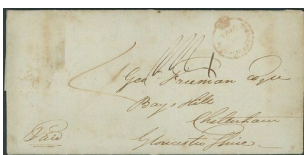 Geo Freeman Esqre
Bays Hill
Cheltenham
Gloucester Shire
Paid